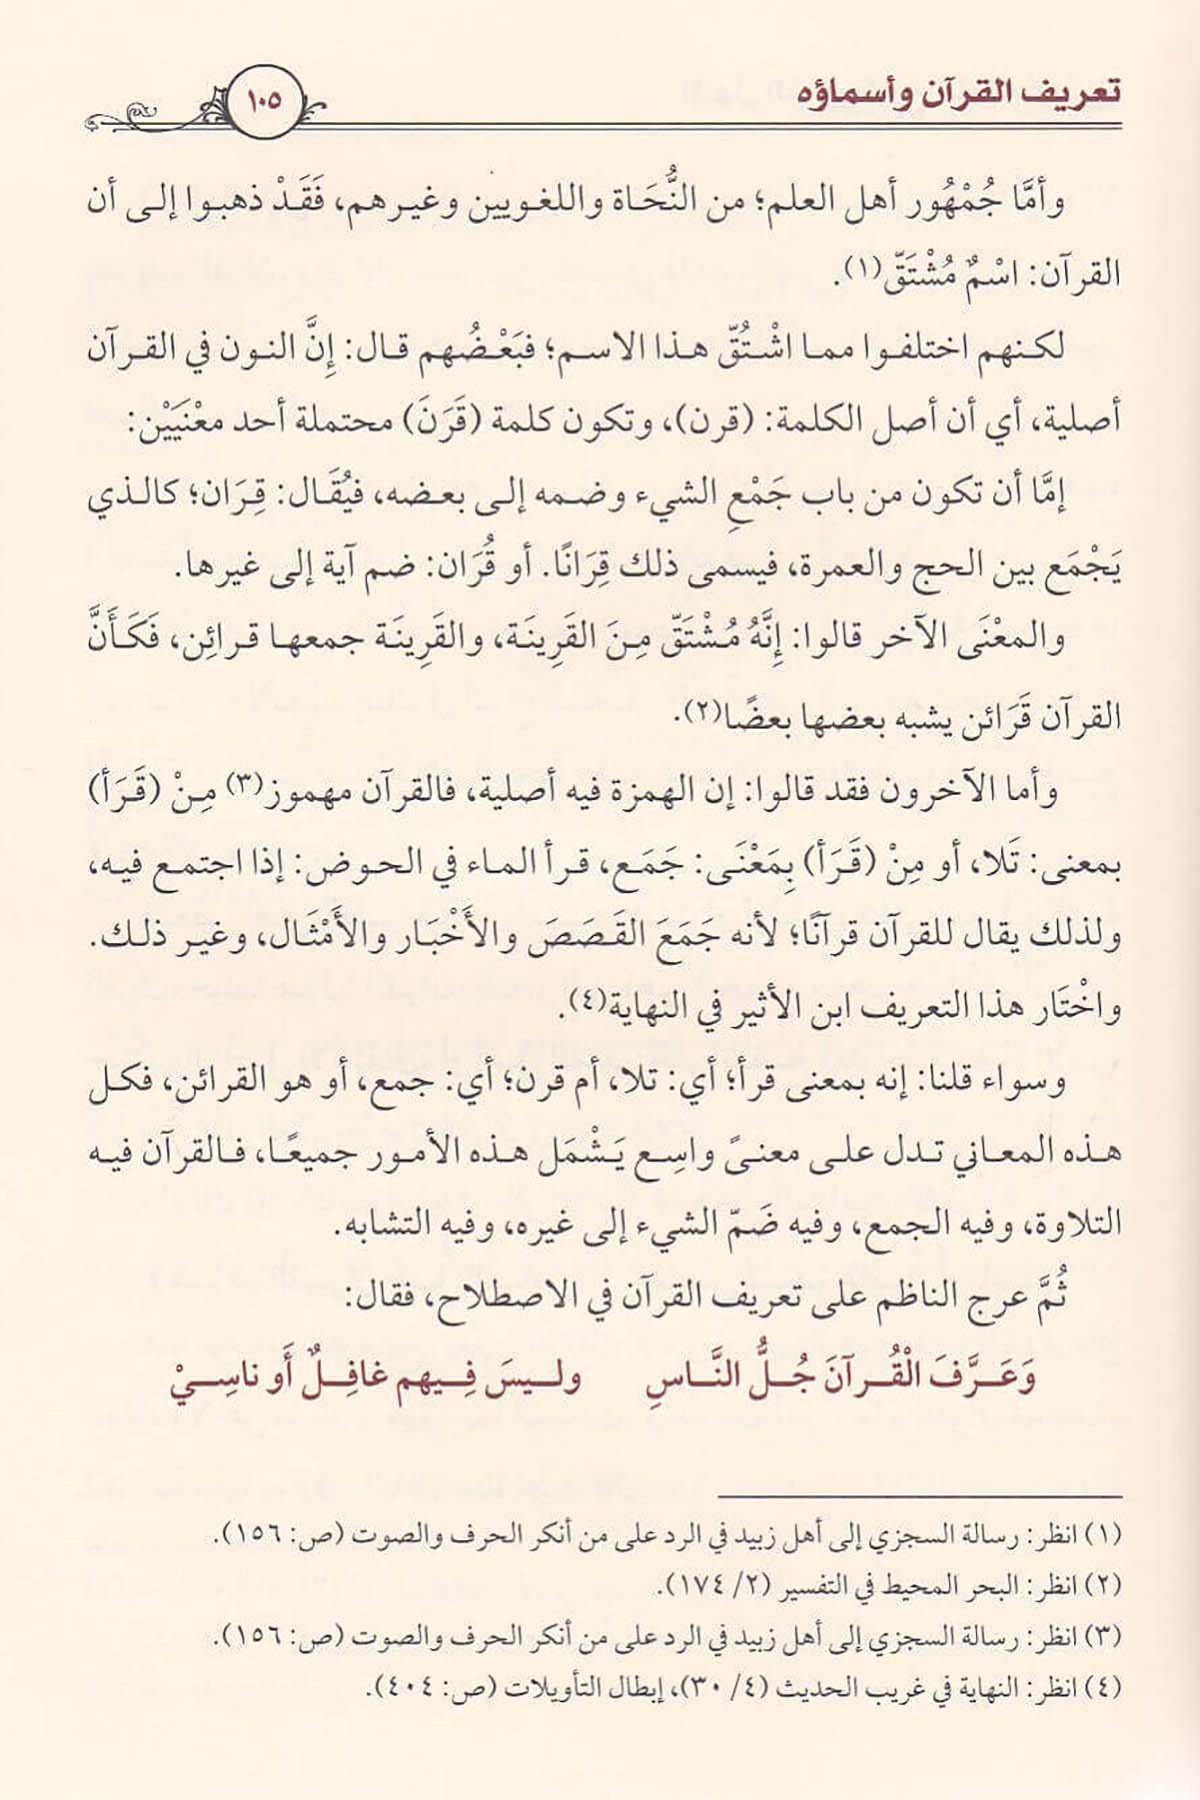 تعريف القرآن وأسماؤه
١٠٥
وأمَّا جُمْهُور أهل العلم؛ من النُّحَاة واللغويين وغيرهم، فَقَدْ ذهبوا إلى أن
القرآن: اسْمٌ مُشْتَقّ(١).
لكنهم اختلفوا مما اشْتُقّ هذا الاسم؛ فبَعْضُهم قال: إِنَّ النون في القرآن
أصلية، أي أن أصل الكلمة: (قرن)، وتكون كلمة (قَرَنَ) محتملة أحد معْنَيَيْن:
إمَّا أن تكون من باب جَمْعِ الشيء وضمه إلى بعضه، فيُقَال: قِرَان؛ كالذي
يَجْمَع بين الحج والعمرة، فيسمى ذلك قِرَانًا. أو قُرَان: ضم آية إلى غيرها.
والمعْنَى الآخر قالوا: إِنَّهُ مُشْتَقّ مِنَ القَرِينَة، والقَرِينَة جمعها قرائِن، فَكَأَنَّ
القرآن قَرَائن يشبه بعضها بعضًا(٢).
وأما الآخرون فقد قالوا: إن الهمزة فيه أصلية، فالقرآن مهموز(٣) مِنْ (قَرَأ)
بمعنى: تَلا، أو مِنْ (قَرَأ) بِمَعْنَى: جَمَع، قرأ الماء في الحوض: إذا اجتمع فيه،
ولذلك يقال للقرآن قرآنًا؛ لأنه جَمَعَ القَصَصَ والأَخْبَار والأَمْثَال، وغير ذلك.
واخْتَار هذا التعريف ابن الأثير في النهاية(٤).
وسواء قلنا: إنه بمعنى قرأ؛ أي: تلا، أم قرن؛ أي: جمع، أو هو القرائن، فكل
هذه المعاني تدل على معنىً واسِع يَشْمَل هذه الأمور جميعًا، فالقرآن فيه
التلاوة، وفيه الجمع، وفيه ضَمّ الشيء إلى غيره، وفيه التشابه.
ثُمَّ عرج الناظم على تعريف القرآن في الاصطلاح، فقال:
وَعَرَّفَ الْقُرآنَ جُلُّ النَّاسِ وليسَ فِيهم غافِلٌ أَو ناسِيْ
(١) انظر: رسالة السجزي إلى أهل زبيد في الرد على من أنكر الحرف والصوت (ص: ١٥٦).
(٢) انظر: البحر المحيط في التفسير (٢/ ١٧٤).
(٣) انظر: رسالة السجزي إلى أهل زبيد في الرد على من أنكر الحرف والصوت (ص: ١٥٦).
(٤) انظر: النهاية في غريب الحديث (٤/ ٣٠)، إبطال التأويلات (ص: ٤٠٤).